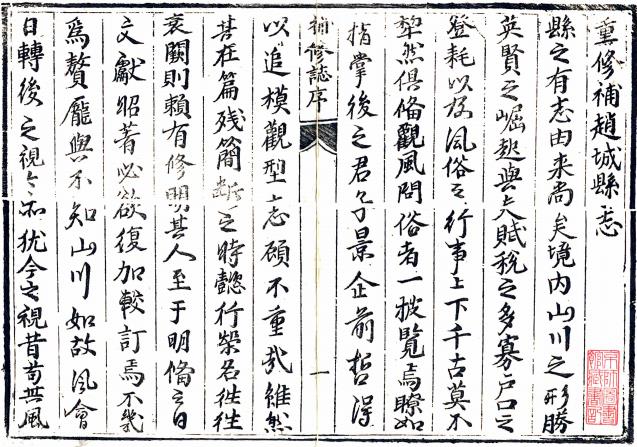 重修補趙城縣志
縣之有志由来尚矣境内山川之形勝
英賢之崛起與夫賦稅之多寡戶口之
登耗以及風俗之行事上下千古莫不
犂然俱備觀風問俗者一披覽焉瞭如
指掌後之君子景企前哲得
補修誌序 一
以追模觀型志顧不重哉維然
在篇残簡斷之時懿行榮名往往
闕則賴有修明其人至于明備之日
文獻昭著必欲復加較訂焉不幾
爲贅龐與不知山川如故風會
日轉後之視今亦猶今之視昔苟無風